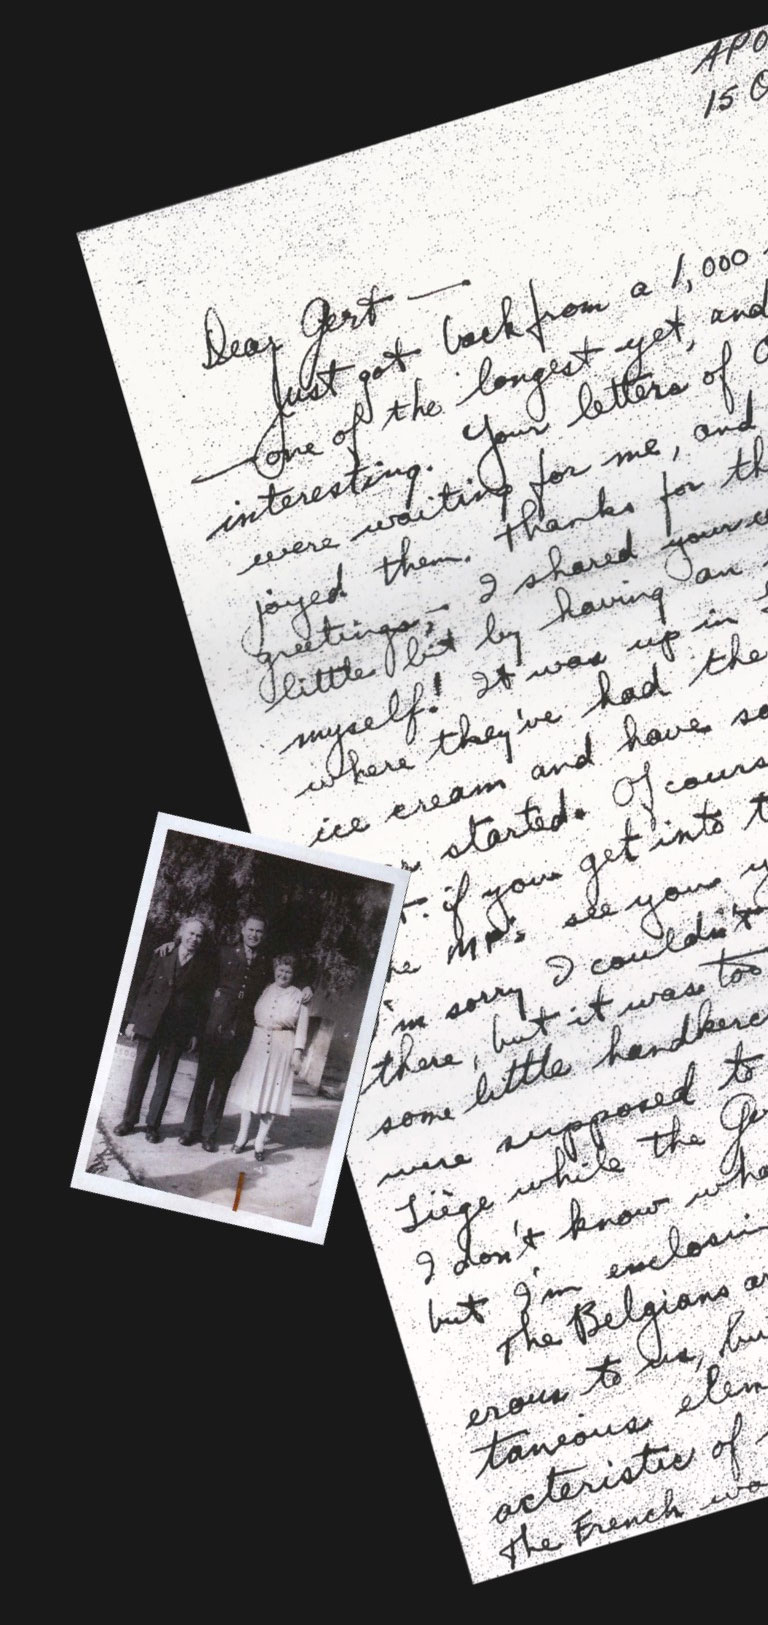 APO
15 O
Dear Gert —
Just got back from a 1,000
one of the longest yet, and
interesting. Your letters of
were waiting for me, and
joyed them. Thanks for th
greetings; I shared your
little bit by having an
myself! It was up in
where they've had the
ice cream and have so
started. Of cours
if you get into t
MP's see you y
I'm sorry I couldn't
there, but it was too
some little handkerc
were supposed to
Liège while the Ger
I don't know wha
but I'm enclosin
The Belgians ar
erous to us, bu
taneous elem
acteristic of
The French wa